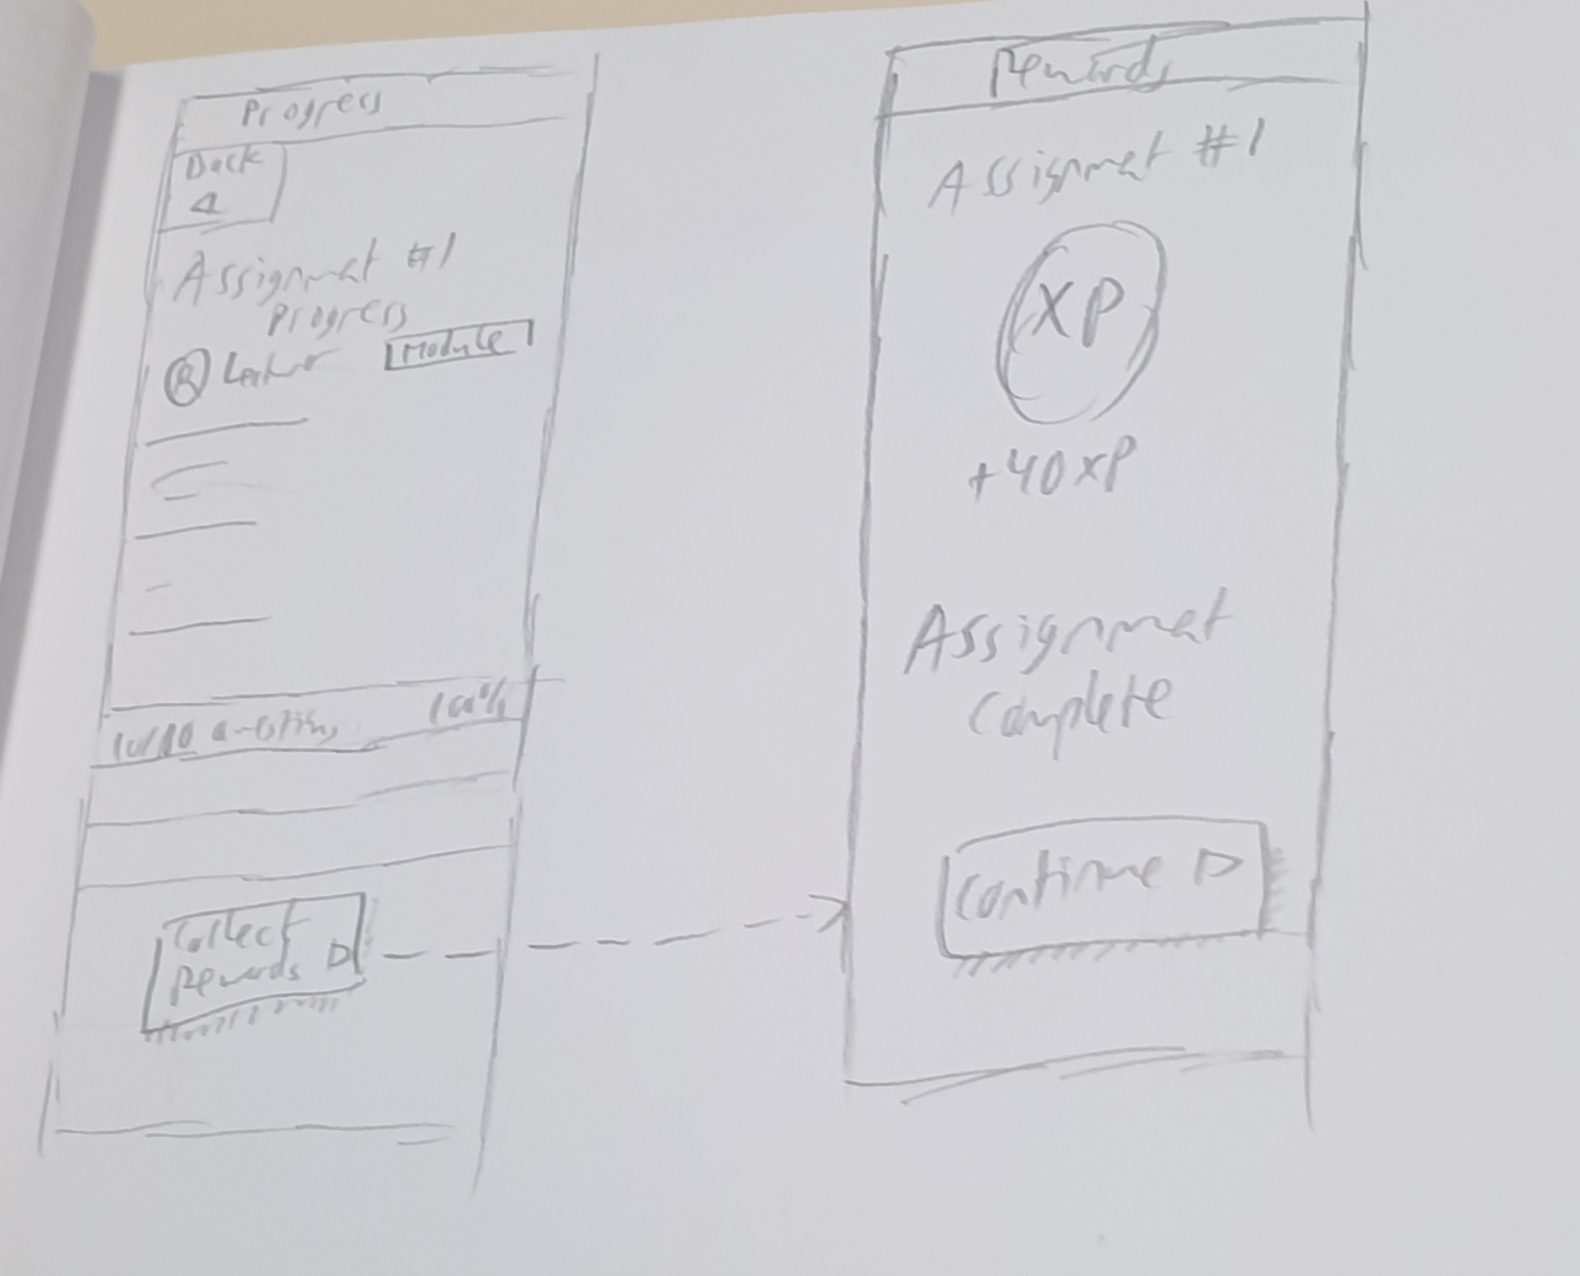 Progress
Back
Assignment #1
Progress
Lecturer Module
10/10 questions 100%
Collect
Rewards
Rewards
Assignment #1
XP
+40 XP
Assignment
complete
Continue